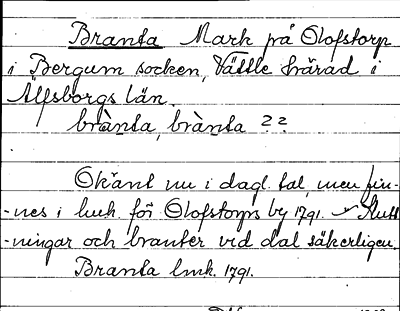 Branta Mark på Olofstorp
i Bergum socken, Vättle härad i
Älfsborgs län.
brànta, brànta ??
Okänt nu i dagl. tal, men fin-
-nes i luk. för Olofstorps by 1791. Slutt
-ningar och branter vid dal säkerligen.
Branta lmk. 1791.